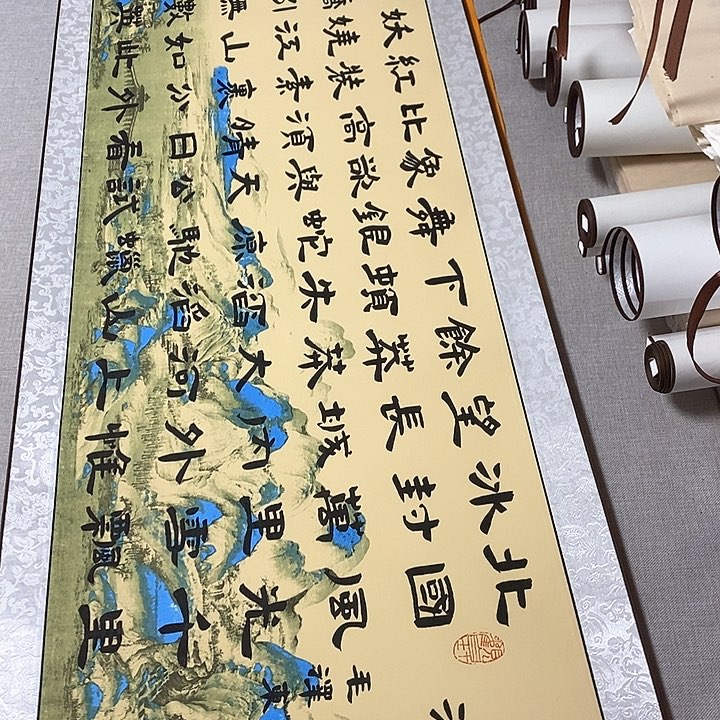 北國風光千里
冰封萬里雪飄
望長城内外惟
餘莽莽大河上
下頓失滔滔山
舞銀蛇原馳蠟
象欲與天公試
比高須晴日看
紅裝素裹分外
妖嬈江山如此
引無數
毛澤東